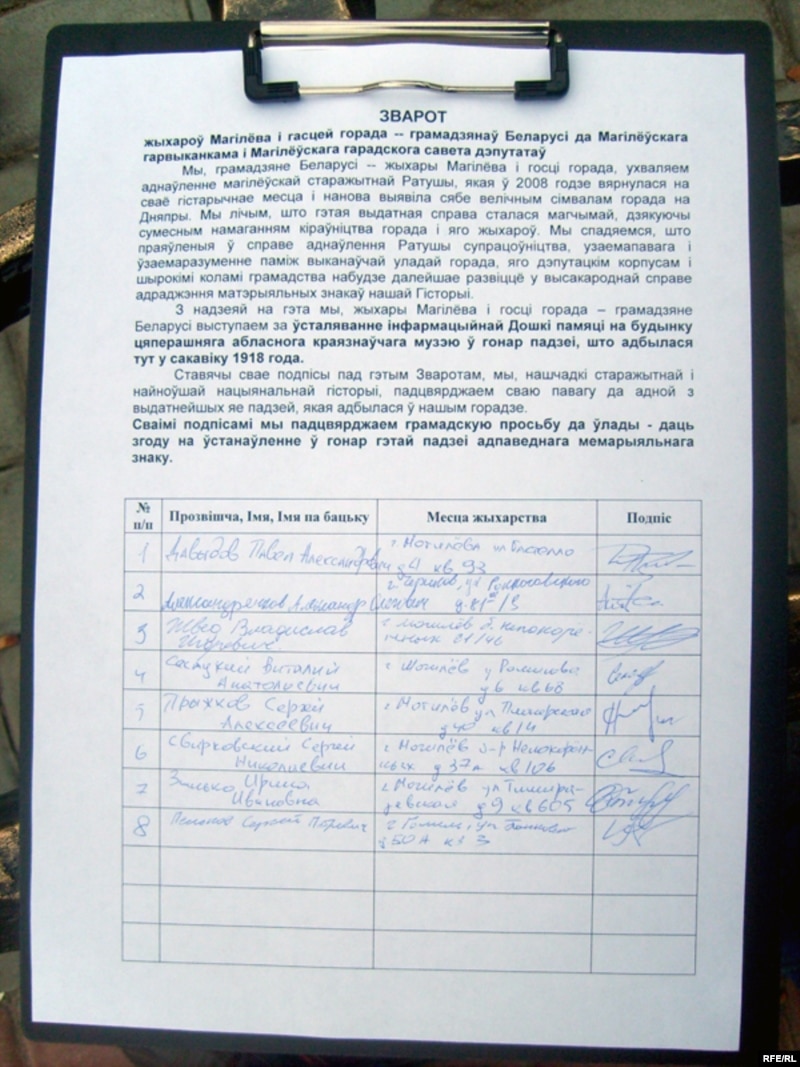 ЗВАРОТ
жыхароў Магілёва і гасцей горада -- грамадзянаў Беларусі да Магілёўскага
гарвыканкама і Магілёўскага гарадскога савета дэпутатаў
Мы, грамадзяне Беларусі -- жыхары Магілёва і госці горада, ухваляем
аднаўленне магілёўскай старажытнай Ратушы, якая ў 2008 годзе вярнулася на
сваё гістарычнае месца і нанова выявіла сябе велічным сімвалам горада на
Дняпры. Мы лічым, што гэтая выдатная справа сталася магчымай, дзякуючы
сумесным намаганням кіраўніцтва горада і яго жыхароў. Мы спадзяемся, што
праяўленыя ў справе аднаўлення Ратушы супрацоўніцтва, узаемапавага і
ўзаемаразуменне паміж выканаўчай уладай горада, яго дэпутацкім корпусам і
шырокімі коламі грамадства набудзе далейшае развіццё у высакароднай справе
адраджэння матэрыяльных знакаў нашай Гісторыі.
З надзеяй на гэта мы, жыхары Магілёва і госці горада – грамадзяне
Беларусі выступаем за ўсталяванне інфармацыйнай Дошкі памяці на будынку
цяперашняга абласнога краязнаўчага музэю ў гонар падзеі, што адбылася
тут у сакавіку 1918 года.
Ставячы свае подпісы пад гэтым Зваротам, мы, нашчадкі старажытнай і
найноўшай нацыянальнай гісторыі, падцвярджаем сваю павагу да адной з
выдатнейшых яе падзей, якая адбылася ў нашым горадзе.
Сваімі подпісамі мы падцвярджаем грамадскую просьбу да ўлады - даць
згоду на ўстанаўленне ў гонар гэтай падзеі адпаведнага мемарыяльнага
знаку.
№ п/п Прозвішча, Імя, Імя па бацьку Месца жыхарства Подпіс
1 Давыдов Павел Александрович г. Могилёв ул
д 4 кв 93
2 г. Чериков, ул. Рокоссовского
Александр
3 Швед Владислав г. Могилёв б. Непокоре-
21/46
4 Виталий г. Могилёв у
Анатолиевич д 6 кв 68
5 Прыжков Сергей г Могилёв ул Пионерская
Алексеевич д 40 кв 14
6 Свирковский Сергей г Могилёв б-р Непокорён-
Николаевич ных д 37а кв 106
7 Ирина г. Могилёв ул Тимиря-
Ивановна зевская д 9 кв 605
8 г
50 А кв 3
RFE/RL